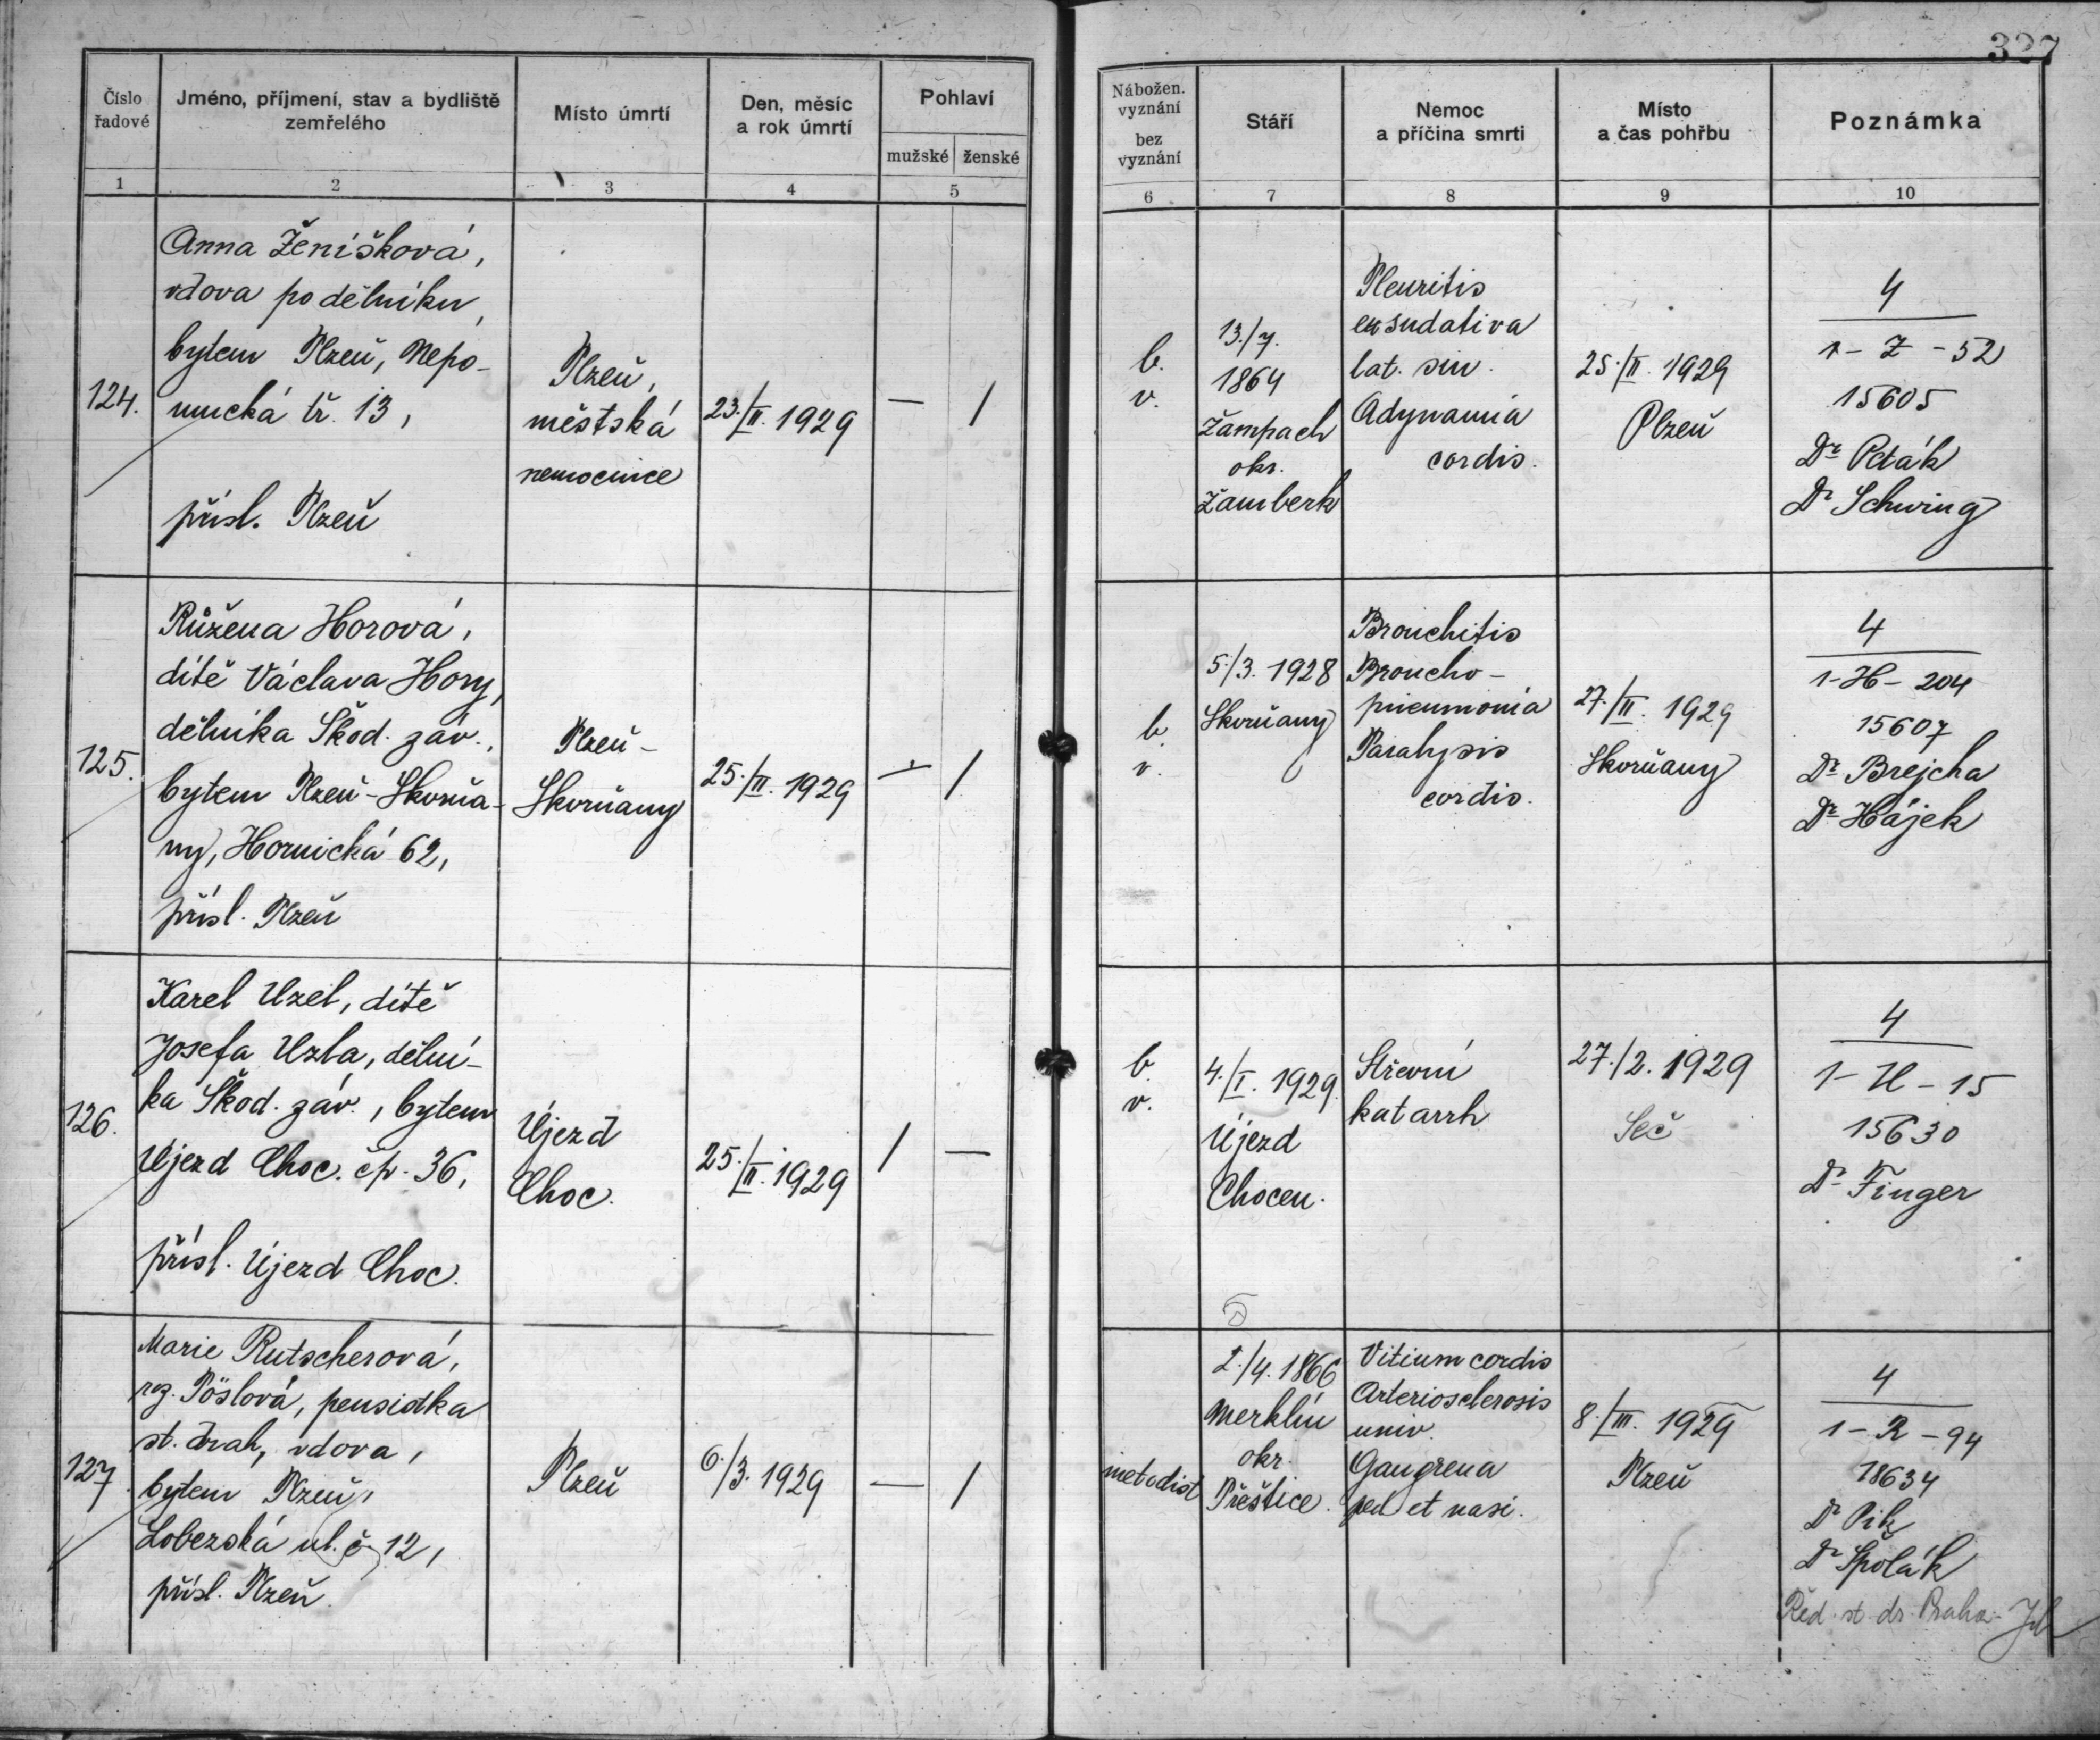 327
Číslo
řadové
Jméno, příjmení, stav a bydliště
zemřelého
Místo úmrtí
Den, měsíc
a rok úmrtí
Pohlaví
mužské ženské
1 2 3 4 5
Nábožen.
vyznání
bez
vyznání
Stáří
Nemoc
a příčina smrti
Místo
a čas pohřbu
Poznámka
6 7 8 9 10
124.
Anna Ženíšková,
vdova po dělníku,
bytem Plzeň, Nepo-
mucká tř. 13,
přísl. Plzeň
Plzeň,
městská
nemocnice
23./II. 1929
— /
b.
v.
13./7.
1864
Žampach
okr.
Žamberk
Pleuritis
exsudativa
lat. sin.
Adynamia
cordis.
25./II. 1929
Plzeň
4
1 - Ž - 52
15605
Dr Pták
Dr Schwing
125.
Růžena Horová,
dítě Václava Hory,
dělníka Škod. záv.,
bytem Plzeň-Skvrňa-
ny, Hornická 62,
přísl. Plzeň
Plzeň-
Skvrňany
25./II. 1929
— /
b.
v.
5./3. 1928
Skvrňany
Bronchitis
Broncho-
pneumonia
Paralysis
cordis.
27./II. 1929
Skvrňany
4
1-H- 204
15607
Dr Brejcha
Dr Hájek
126.
Karel Uzel, dítě
Josefa Uzla, dělní-
ka Škod. záv., bytem
Újezd Choc. čp. 36,
přísl. Újezd Choc.
Újezd
Choc.
25./II. 1929
/ —
b.
v.
4./I. 1929
Újezd
Chocen.
Střevní
katarrh
27./2. 1929
Seč
4
1- U - 15
15630
Dr Finger
127.
Marie Rutscherová,
roz. Pöslová, pensistka
st. drah, vdova,
bytem Plzeň,
Lobezská ul. č. 12,
přísl. Plzeň
Plzeň
6./3. 1929
— /
metodist
2./4. 1866
Merklín
okr.
Přeštice.
Vitium cordis
Arteriosclerosis
univ.
Gangrena
ped et nasi.
8./III. 1929
Plzeň
4
1 - R - 94
18634
Dr Pik
Dr Spolák
Řed. st. dr. Praha-